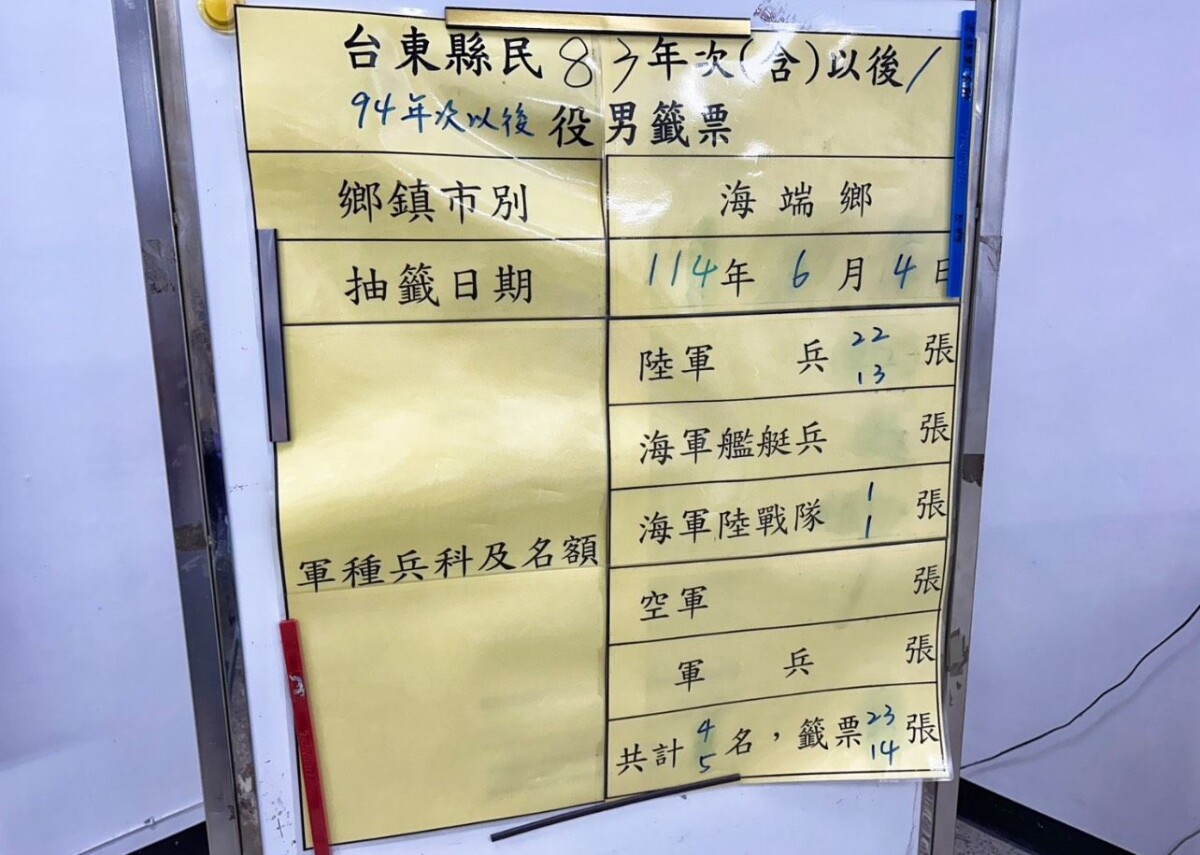 台東縣民83年次(含)以後/
94年次以後 役男籤票
鄉鎮市別 海端鄉
抽籤日期 114年 6 月 4 日
軍種兵科及名額
陸軍 兵 22 張
13
海軍艦艇兵 張
海軍陸戰隊 1 張
1
空軍 張
軍 兵 張
共計 4 名，籤票 23 張
5 14